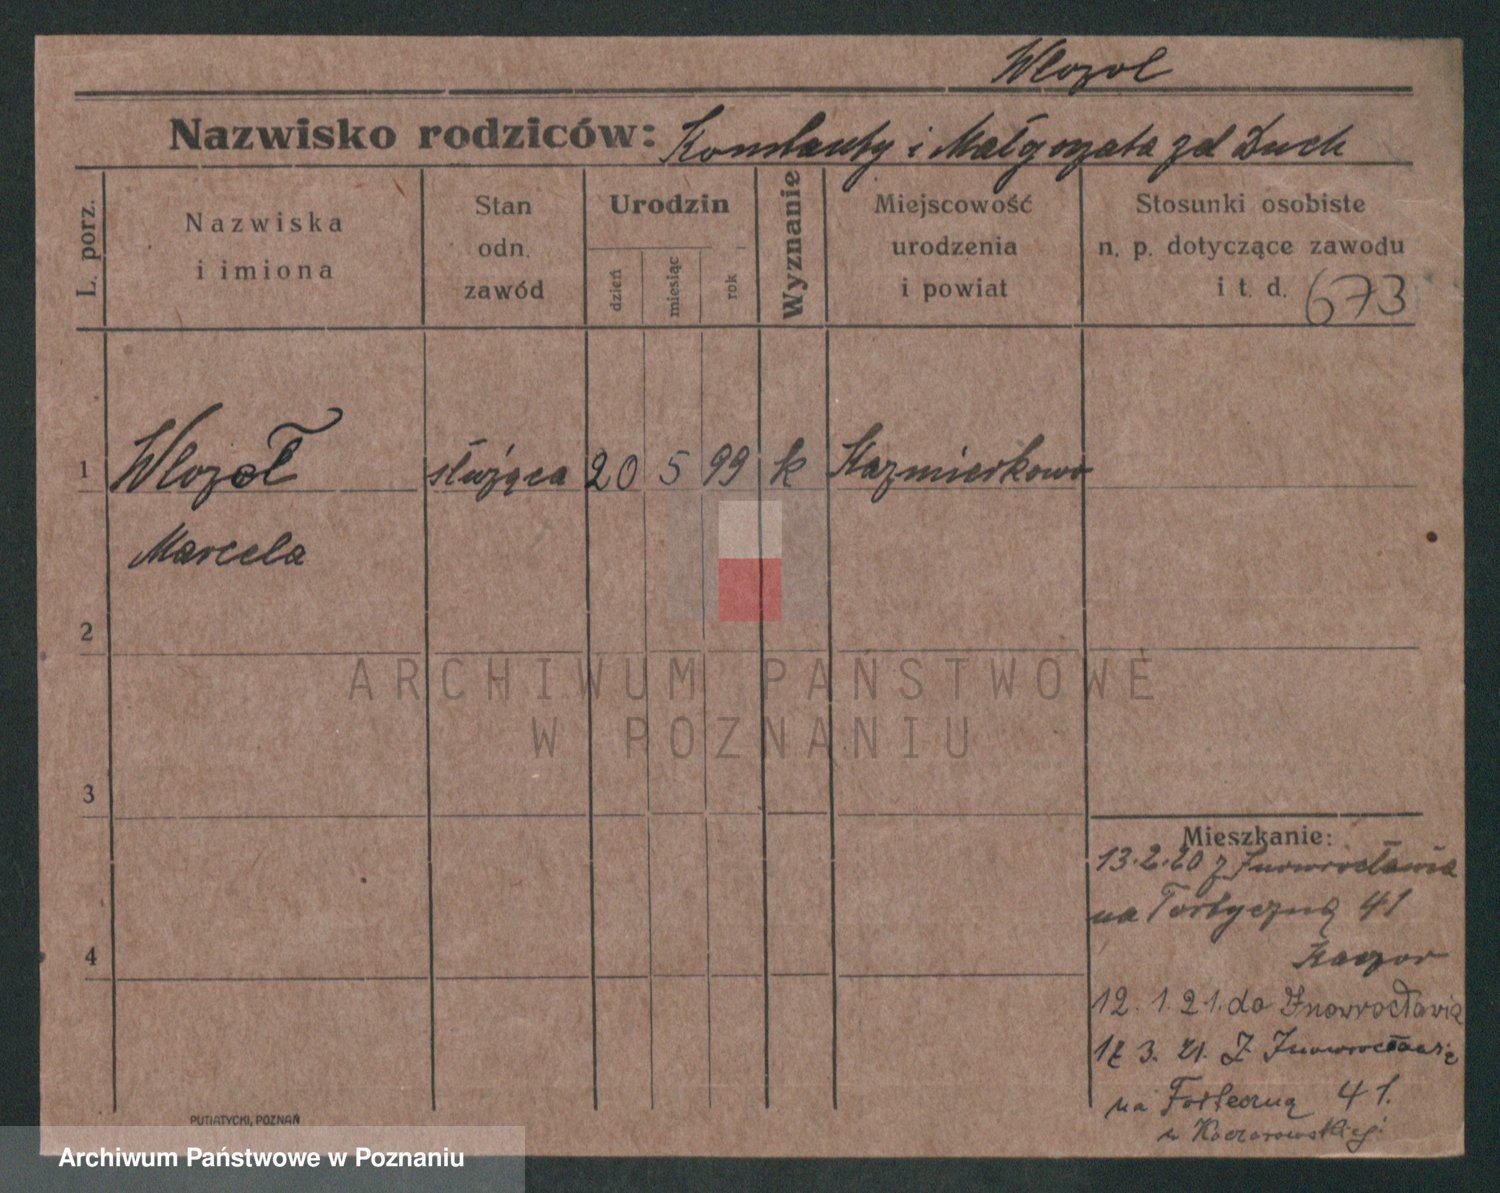 Wlozol
Nazwisko rodziców: Konstanty i Małgorzata zd Duch
L. porz.
Nazwiska
i imiona
Stan
odn.
zawód
Urodzin
dzień
miesiąc
rok
Wyznanie
Miejscowość
urodzenia
i powiat
Stosunki osobiste
n. p. dotyczące zawodu
i t. d. 673
1 Wlozoł służąca 20 5 99 k Kazmierkowo
Marcela
2
ARCHIWUM PAŃSTWOWE
W POZNANIU
3
4
Mieszkanie:
13.2.20 z Inowrocławia
na Forteczną 41
Kaczor
12. 1. 21. do Inowrocławia
17 3. 21. Z Inowrocławia
na Forteczną 41.
u Kaczorowskiej
PUTIATYCKI, POZNAŃ
Archiwum Państwowe w Poznaniu